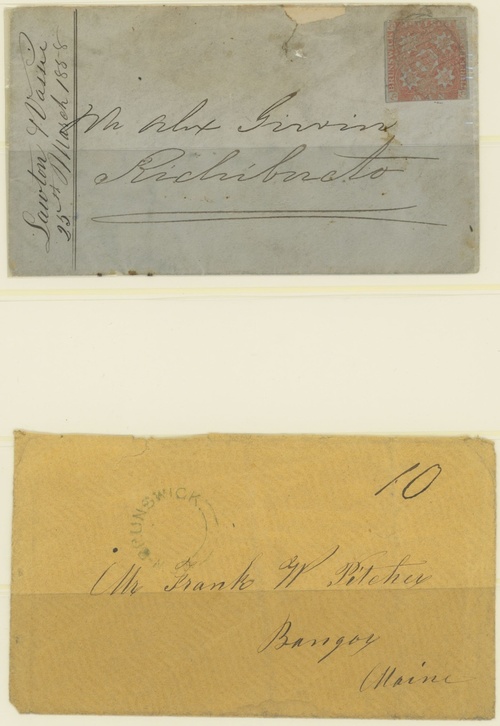 Lawton & Vassie
25th March 1858
Mr Alex Girvin
Richibucto
10
BRUNSWICK
Mr Frank W Pitcher
Bangor
Maine